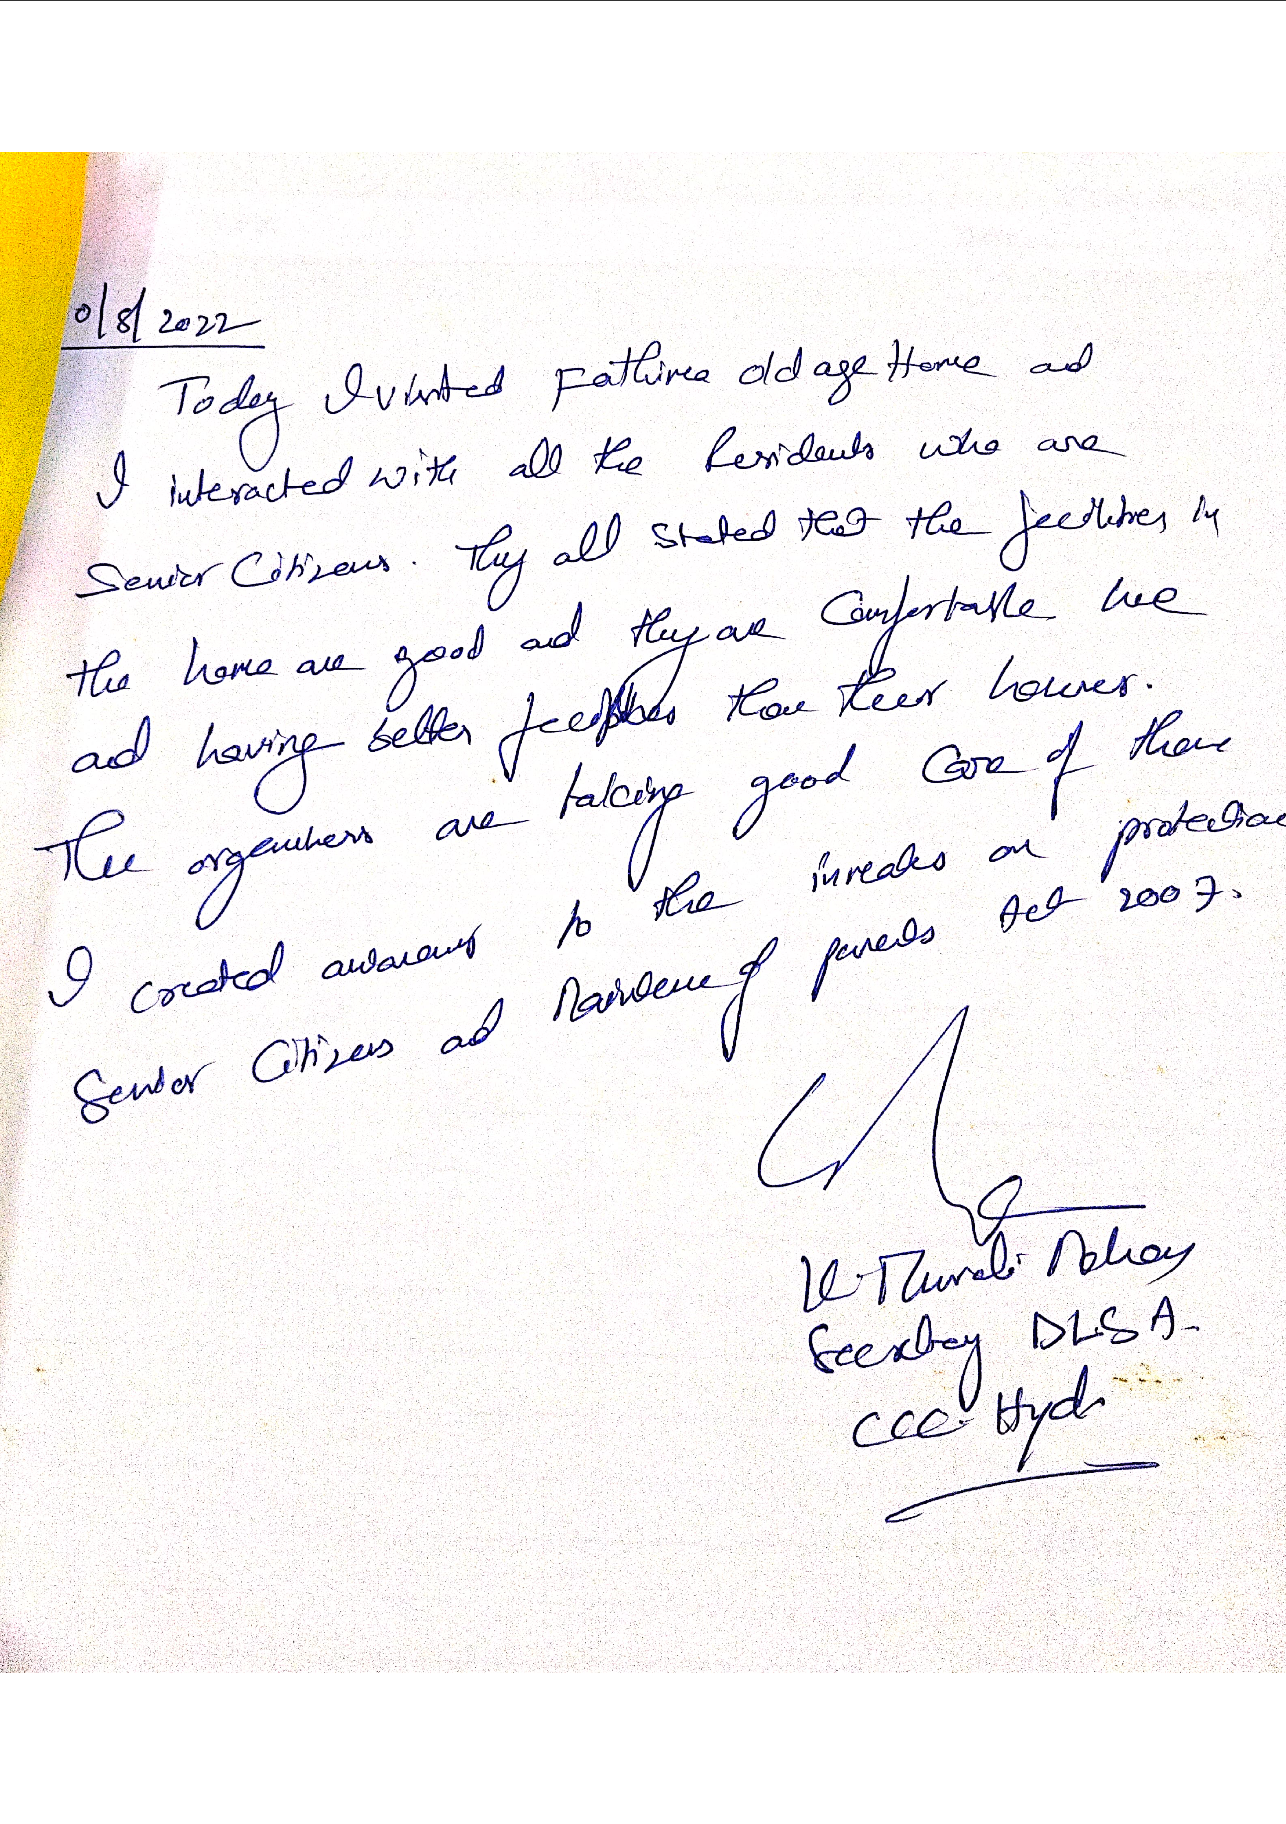 0/8/2022
Today I visited Fathima old age Home and
I interacted with all the Residents who are
Senior Citizens. They all stated that the facilities in
the home are good and they are Comfortable here
and having better facilities than their houses.
The organisers are taking good Care of them
I created awareness to the inmates on protection
Senior Citizens and Maintenance of parents Act 2007.
K. Murali Mohan
Secretary DLSA.
CCC. Hyd.